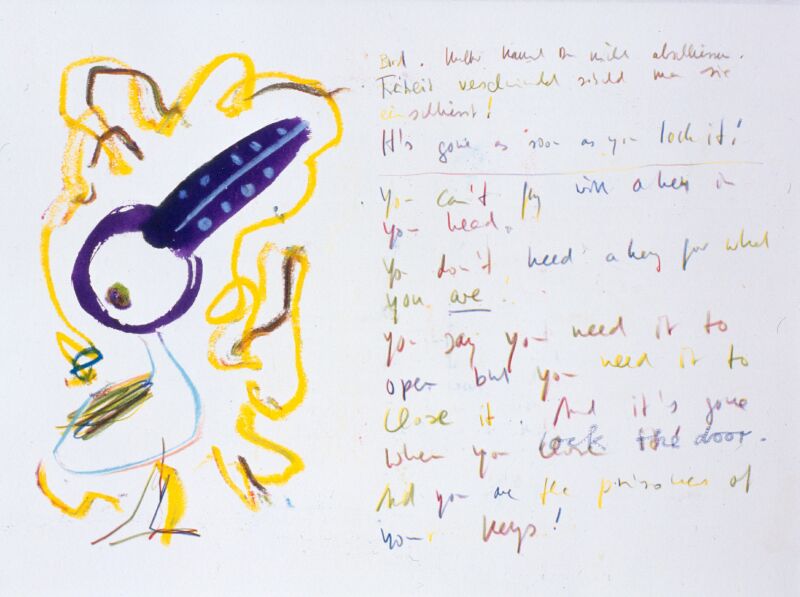 Bird. Luther kannst Du nicht abschliessen.
Freiheit verschwindet sobald man sie
einschliesst!
It's gone as soon as you lock it!
You can't fly with a key in
your head.
You don't need a key for what
you are!
you say you need it to
open but you need it to
close it. And it's gone
when you lock the door.
And you are the prisoner of
your keys!